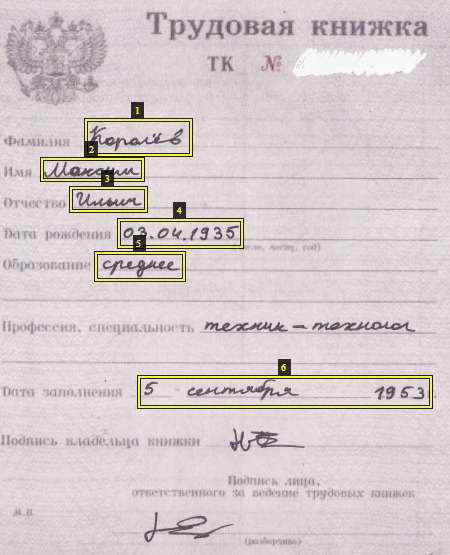 Трудовая книжка
ТК №
1
Фамилия Королёв
2
Имя Максим
3
Отчество Ильич
4
Дата рождения 03.04.1935
(число, месяц, год)
5
Образование среднее
Профессия, специальность техник – технолог
6
Дата заполнения 5 сентября 1953
Подпись владельца книжки
Подпись лица,
ответственного за ведение трудовых книжек
М.П.
(разборчиво)